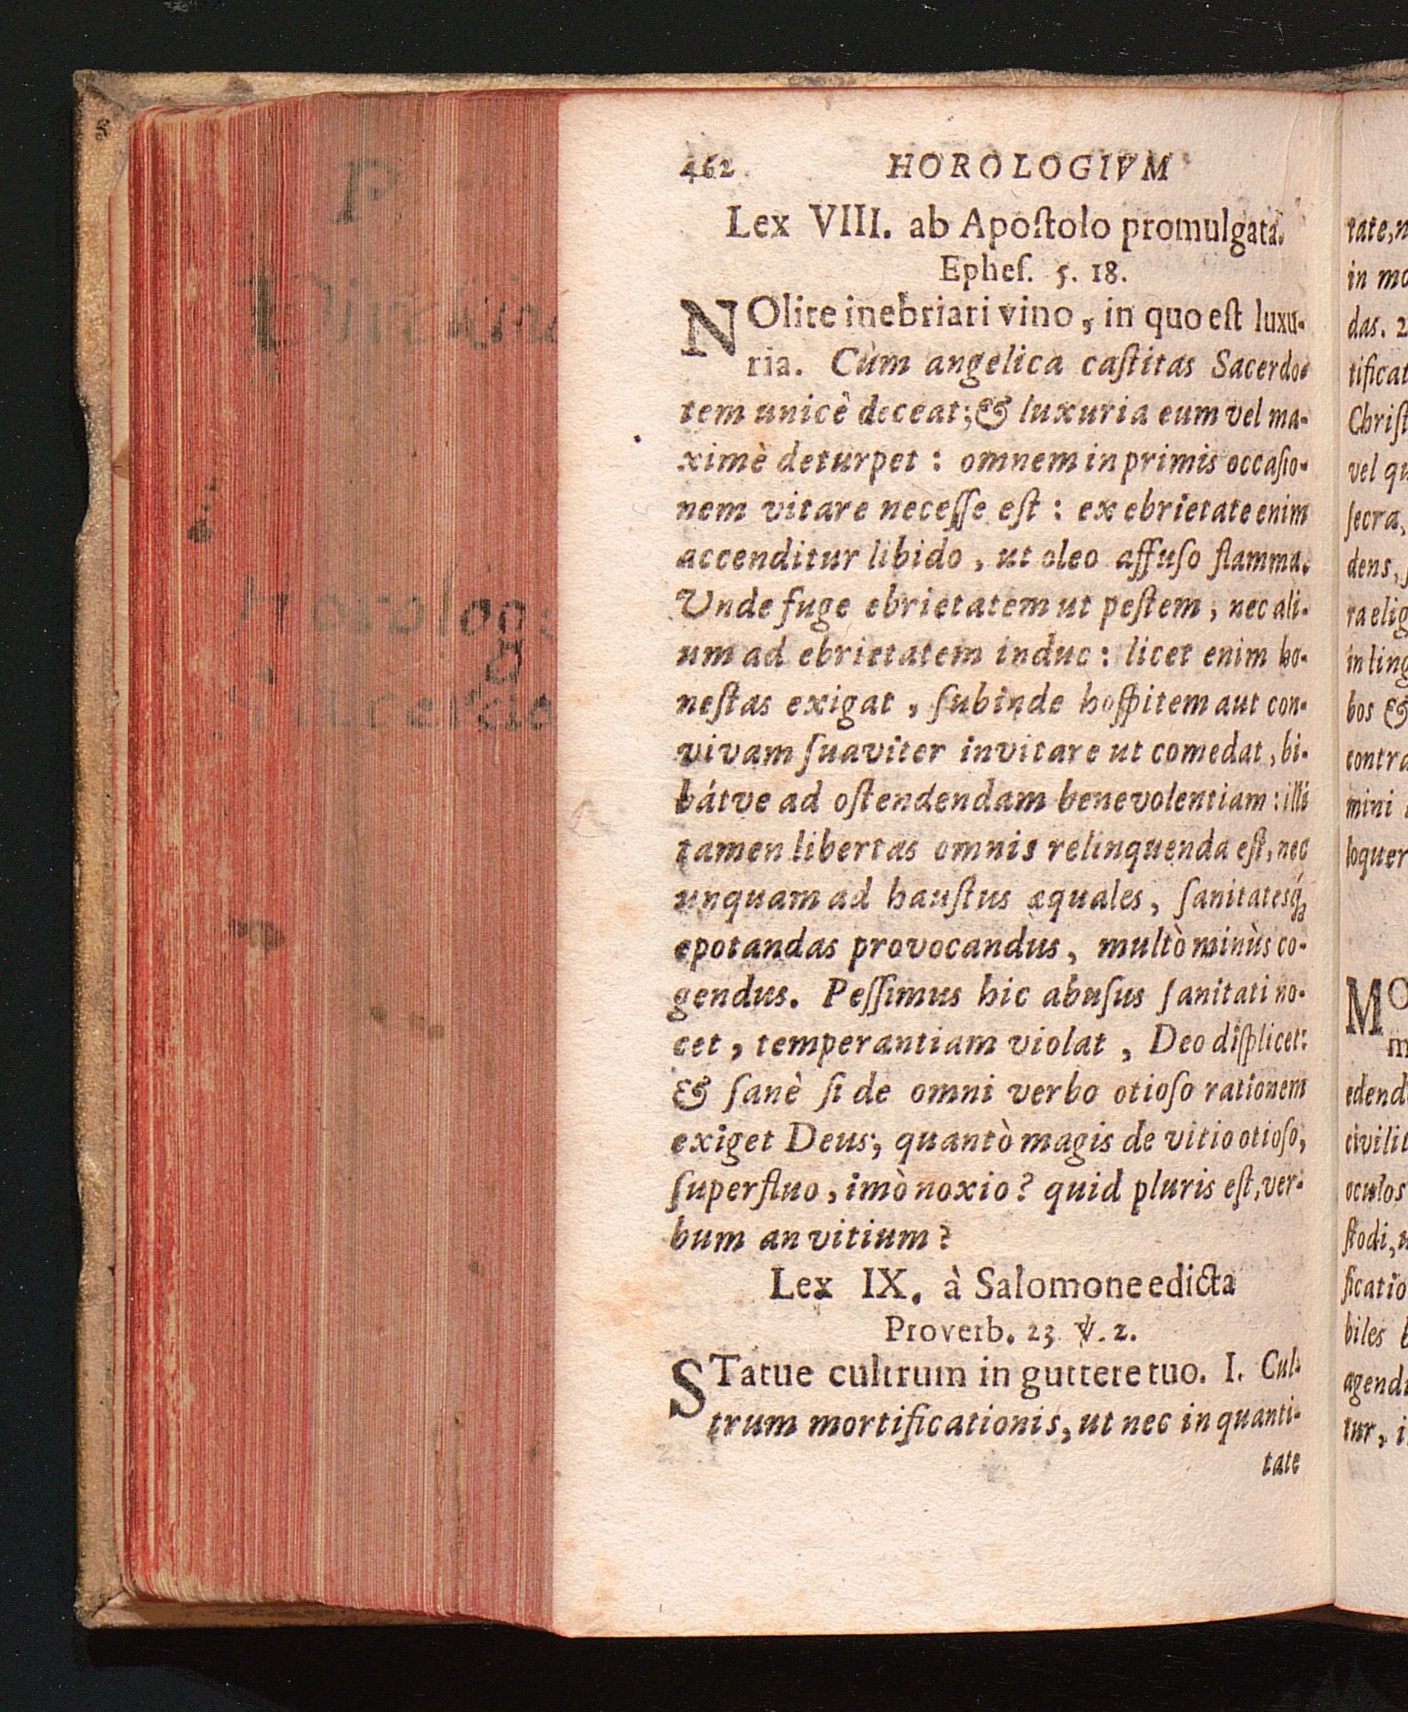 462 HOROLOGIVM
Lex VIII. ab Apoſtolo promulgata.
Epheſ. 5. 18.
NOlite inebriari vino, in quo eſt luxu-
ria. Cùm angelica caſtitas Sacerdo-
tem unicè deceat; & luxuria eum vel ma-
ximè deturpet: omnem inprimis occaſio-
nem vitare neceſſe eſt: ex ebrietate enim
accenditur libido, ut oleo affuſo flamma.
Unde fuge ebrietatem ut peſtem, nec ali-
um ad ebrietatem induc: licet enim ho-
neſtas exigat, ſubinde hoſpitem aut con-
vivam ſuaviter invitare ut comedat, bi-
bátve ad oſtendendam benevolentiam: illi
tamen libertas omnis relinquenda eſt, nec
unquam ad hauſtus æquales, ſanitatesq́;
epotandas provocandus, multò minùs co-
gendus. Peſſimus hic abuſus ſanitati no-
cet, temperantiam violat, Deo diſplicet:
& ſanè ſi de omni verbo otioſo rationem
exiget Deus; quantò magis de vitio otioſo,
ſuperfluo, imò noxio? quid pluris eſt, ver-
bum an vitium?
Lex IX. à Salomone edicta
Proverb. 23 ℣. 2.
STatue cultrum in gutture tuo. I. Cul-
trum mortificationis, ut nec in quanti-
tate
tate, n
in mo
das. 2
tificat
Chriſt
vel qu
ſecra,
dens, ſ
ra elig
in ling
bos &
contra
mini
loquer
MO
m
edend
civilit
oculos
ſtodi, u
ficatio
biles b
agend
tur, i